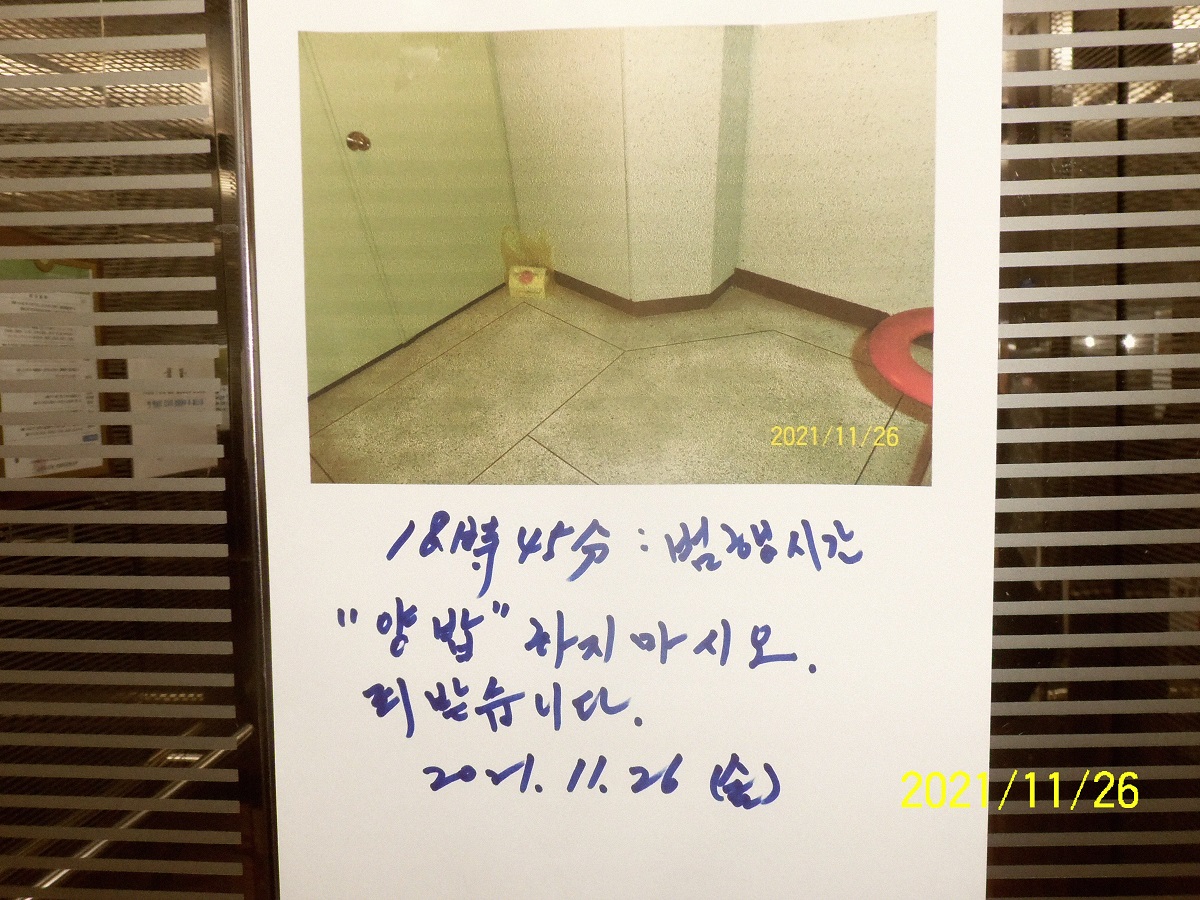 2021/11/26
18時 45分 : 범행시간
"양밥" 하지 마시오.
되받습니다.
2021. 11. 26 (金)
2021/11/26